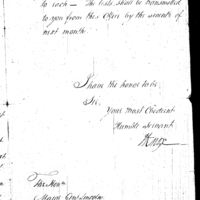 to each — The lists shall be transmitted
to you from this Office by the seventh of
next month.
I have the honor to be
Sir,
Your most Obedient
Humble Servant
H Knox
The Honble
Major Genl Lincoln